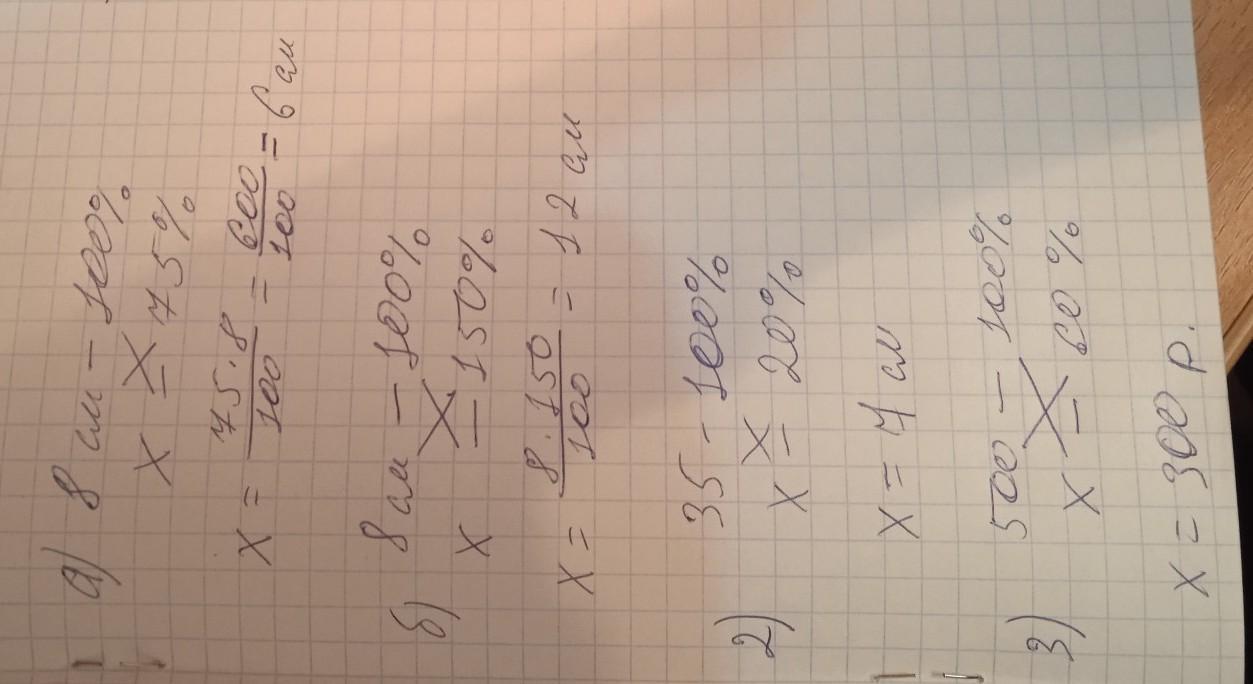 а) 8 см – 100%
х – 75%
х = 75·8/100 = 600/100 = 6 см
б) 8 см – 100%
х – 150%
х = 8·150/100 = 12 см
2) 35 – 100%
х – 20%
х = 7 см
3) 500 – 100%
х – 60%
х = 300 р.